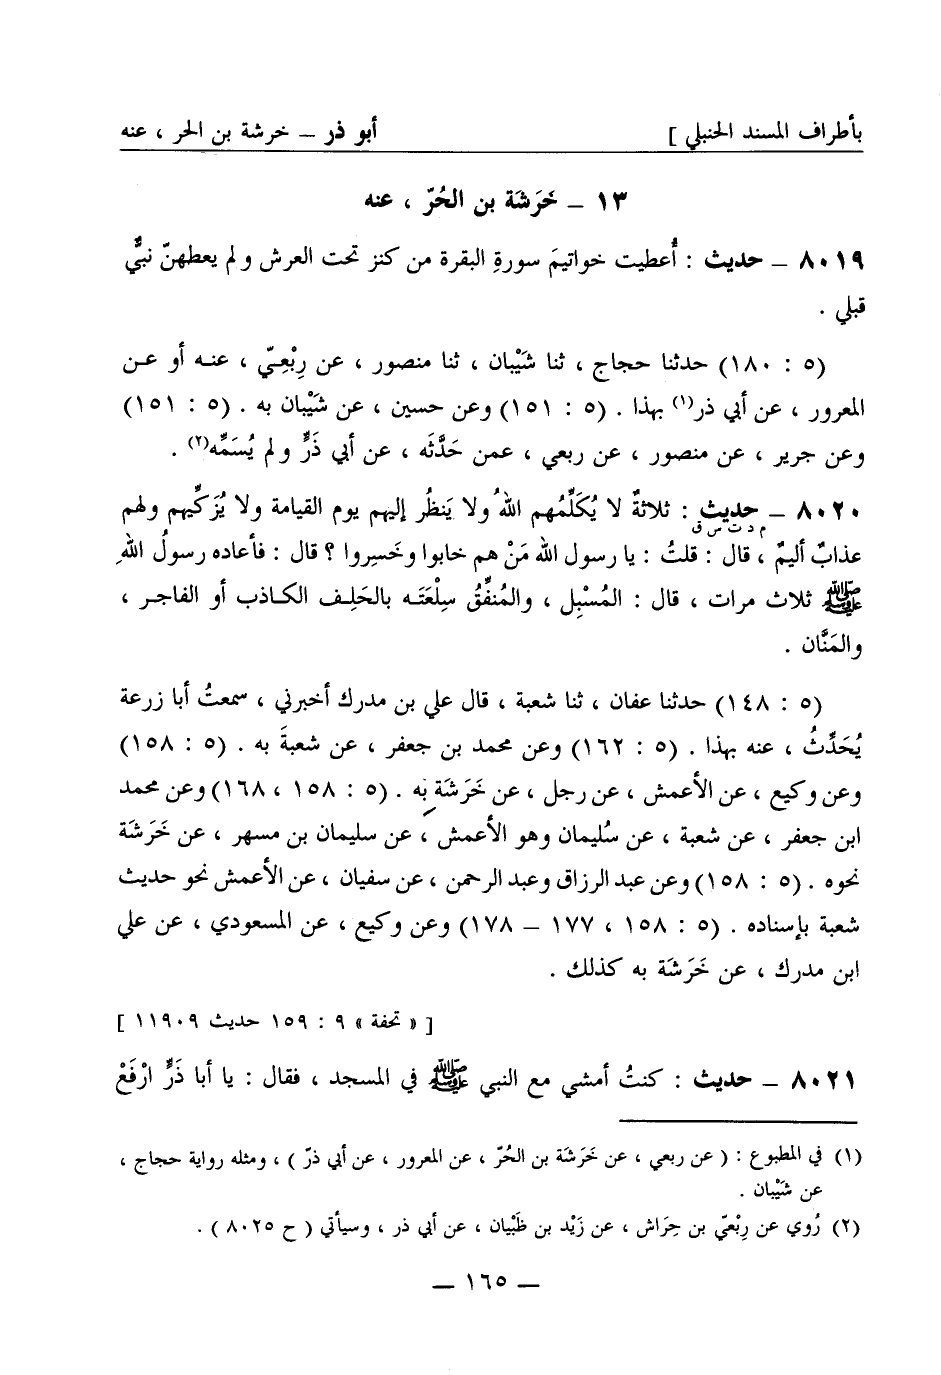 بأطراف المسند الحنبلي ] أبو ذر – خرشة بن الحر ، عنه
١٣ – خَرَشَة بن الحُرّ ، عنه
٨٠١٩ – حديث : أُعطيت خواتيمَ سورةِ البقرة من كنز تحت العرش ولم يعطهنّ نبيٌّ
قبلي .
(٥ : ١٨٠) حدثنا حجاج ، ثنا شَيْبان ، ثنا منصور ، عن رِبْعِيّ ، عنه أو عن
المعرور ، عن أبي ذر(١) بهذا . (٥ : ١٥١) وعن حسين ، عن شَيْبان به . (٥ : ١٥١)
وعن جرير ، عن منصور ، عن ربعي ، عمن حَدَّثَه ، عن أبي ذَرٍّ ولم يُسَمِّه(٢) .
٨٠٢٠ – حديث : ثلاثةٌ لا يُكَلِّمُهم اللهُ ولا يَنظُر إليهم يوم القيامة ولا يُزَكِّيهم ولهم
م د ت س ق
عذابٌ أليمٌ ، قال : قلتُ : يا رسول الله مَنْ هم خابوا وخَسِروا ؟ قال : فأعاده رسولُ اللهِ
ﷺ ثلاث مرات ، قال : المُسْبِل ، والمُنفِّقُ سِلْعَتَه بالحَلِف الكاذب أو الفاجر ،
والمَنَّان .
(٥ : ١٤٨) حدثنا عفان ، ثنا شعبة ، قال علي بن مدرك أخبرني ، سمعتُ أبا زرعة
يُحَدِّثُ ، عنه بهذا . (٥ : ١٦٢) وعن محمد بن جعفر ، عن شعبةَ به . (٥ : ١٥٨)
وعن وكيع ، عن الأعمش ، عن رجل ، عن خَرَشَة به . (٥ : ١٥٨ ، ١٦٨) وعن محمد
ابن جعفر ، عن شعبة ، عن سُليمان وهو الأعمش ، عن سليمان بن مسهر ، عن خَرَشَة
نحوه . (٥ : ١٥٨) وعن عبد الرزاق وعبد الرحمن ، عن سفيان ، عن الأعمش نحو حديث
شعبة بإسناده . (٥ : ١٥٨ ، ١٧٧ – ١٧٨) وعن وكيع ، عن المسعودي ، عن علي
ابن مدرك ، عن خَرَشَة به كذلك .
[ « تحفة » ٩ : ١٥٩ حديث ١١٩٠٩ ]
٨٠٢١ – حديث : كنتُ أمشي مع النبي ﷺ في المسجد ، فقال : يا أبا ذَرٍّ ارْفَعْ
(١) في المطبوع : ( عن ربعي ، عن خَرَشَة بن الحُرّ ، عن المعرور ، عن أبي ذرّ ) ، ومثله رواية حجاج ،
عن شَيْبان .
(٢) رُوي عن رِبْعيّ بن حِرَاش ، عن زَيْد بن ظَبْيان ، عن أبي ذر ، وسيأتي ( ح ٨٠٢٥ ) .
– ١٦٥ –